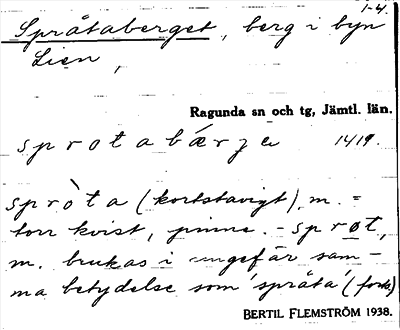 1-4.
Språtaberget, berg i byn
Lien,
Ragunda sn och tg, Jämtl. län.
sprotabærʒe 1419.
spròta (kortstavigt) m. =
torr kvist, pinne. - sprøt,
m. brukas i ungefär sam-
ma betydelse som 'språta' (forts)
BERTIL FLEMSTRÖM 1938.